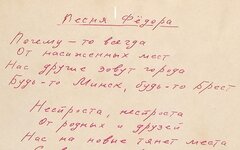 Песня Фёдора
Почему-то всегда
От насиженных мест
Нас другие зовут города
Будь-то Минск, будь-то Брест
Неспроста, неспроста
От родных и друзей
Нас на новые тянет места